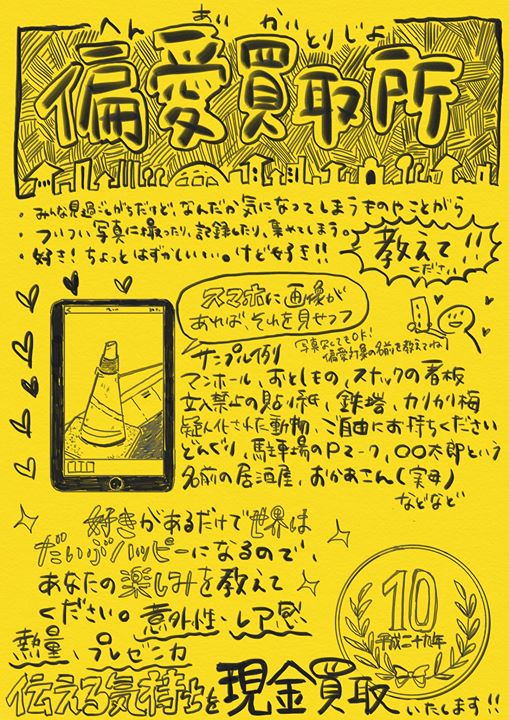 へんあいかいとりじょ
偏愛買取所
・みんな見過ごしがちだけど、なんだか気になってしまうものやことがら
・ついつい写真に撮ったり、記録したり、集めてしまう。
・好き!ちょっとはずかしいい。けど好き!!
教えて!!
ください
スマホに画像が
あれば、それを見せつつ
写真なしでもOK!
偏愛対象の名前を教えてね
サンプル例
マンホール、おとしもの、スナックの看板
立入禁止の貼り紙、鉄塔、カリカリ梅
擬人化された動物、ご自由にお持ちください
どんぐり、駐車場のPマーク、〇〇太郎という
名前の居酒屋、おかあさん(実母)
などなど
好きがあるだけで世界は
だいぶハッピーになるので、
あなたの楽しみを教えて
ください。意外性・レア感
熱量、プレゼン力
伝える気持ちを現金買取いたします!!
10
平成二十九年